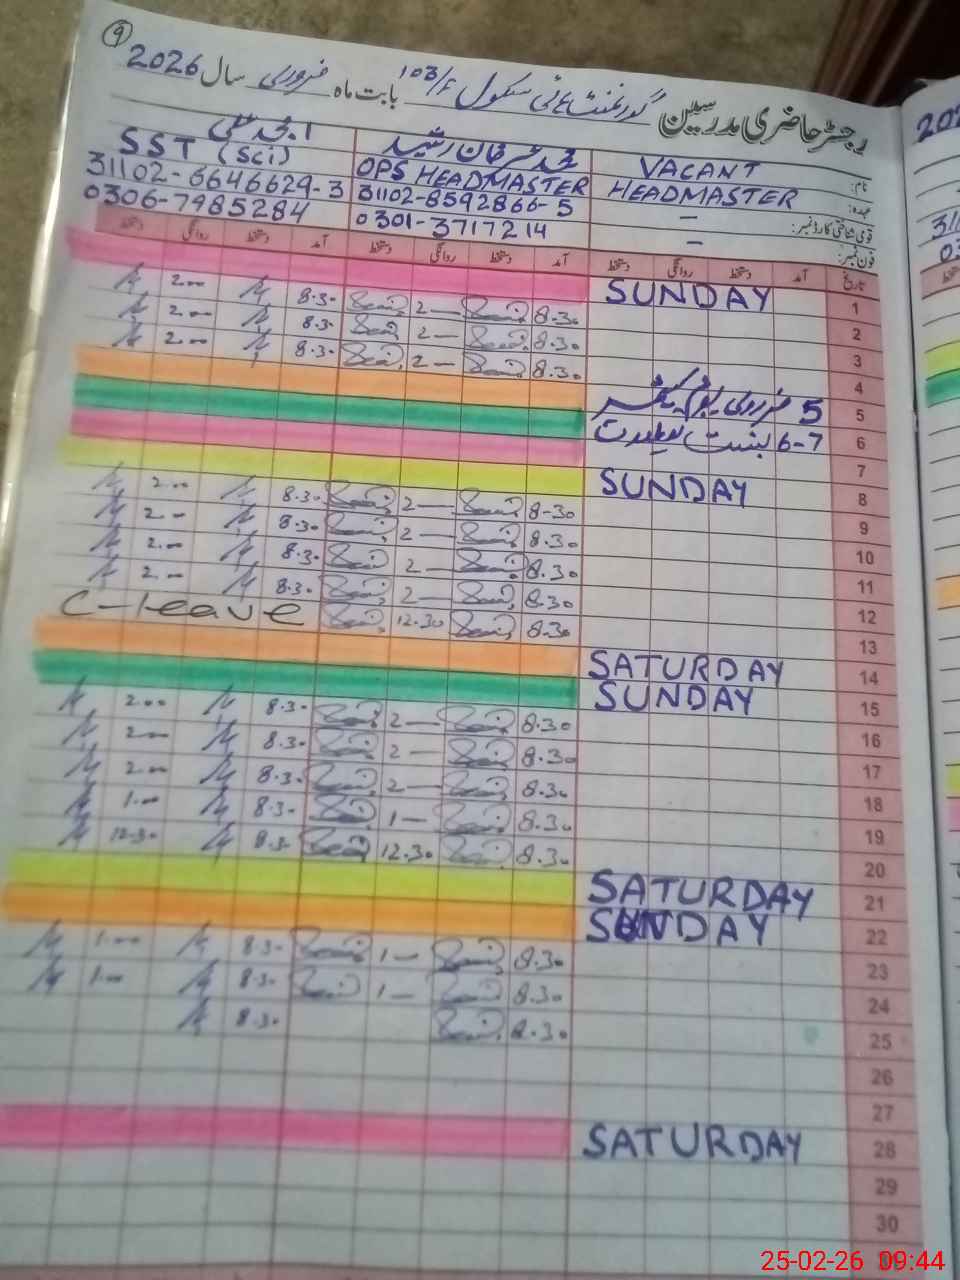 9
رجسٹر حاضری مدرسین گورنمنٹ ہائی سکول 103/F بابت ماہ فروری سال 2026
نام: VACANT محمد عرفان رشید
عہدہ: HEADMASTER OPS HEADMASTER SST (Sci)
قومی شناختی کارڈ نمبر: – 31102-8592866-5 31102-6646629-3
فون نمبر: – 0301-3717214 0306-7985284
تاریخ آمد دستخط روانگی دستخط آمد دستخط روانگی دستخط آمد دستخط روانگی دستخط
1 SUNDAY
2 8.30 2— 8.30 2.00
3 8.30 2— 8.30 2.00
4 8.30 2— 8.30 2.00
5 5 فروری یوم کشمیر
6 6-7 بسنت
7
8 SUNDAY
9 8-30 2— 8.30 2.00
10 8.30 2— 8.30 2.00
11 8.30 2— 8.30 2.00
12 8.30 2— 8.30 2.00
13 8.30 12.30 C-leave
14 SATURDAY
15 SUNDAY
16 8.30 2— 8.30 2.00
17 8.30 2— 8.30 2.00
18 8.30 2— 8.30 2.00
19 8.30 1— 8.30 1.00
20 8.30 12.30 8.30 12.30
21 SATURDAY
22 SUNDAY
23 8.30 1— 8.30 1.00
24 8.30 1— 8.30 1.00
25 8.30 8.30
26
27
28 SATURDAY
29
30
25-02-26 09:44